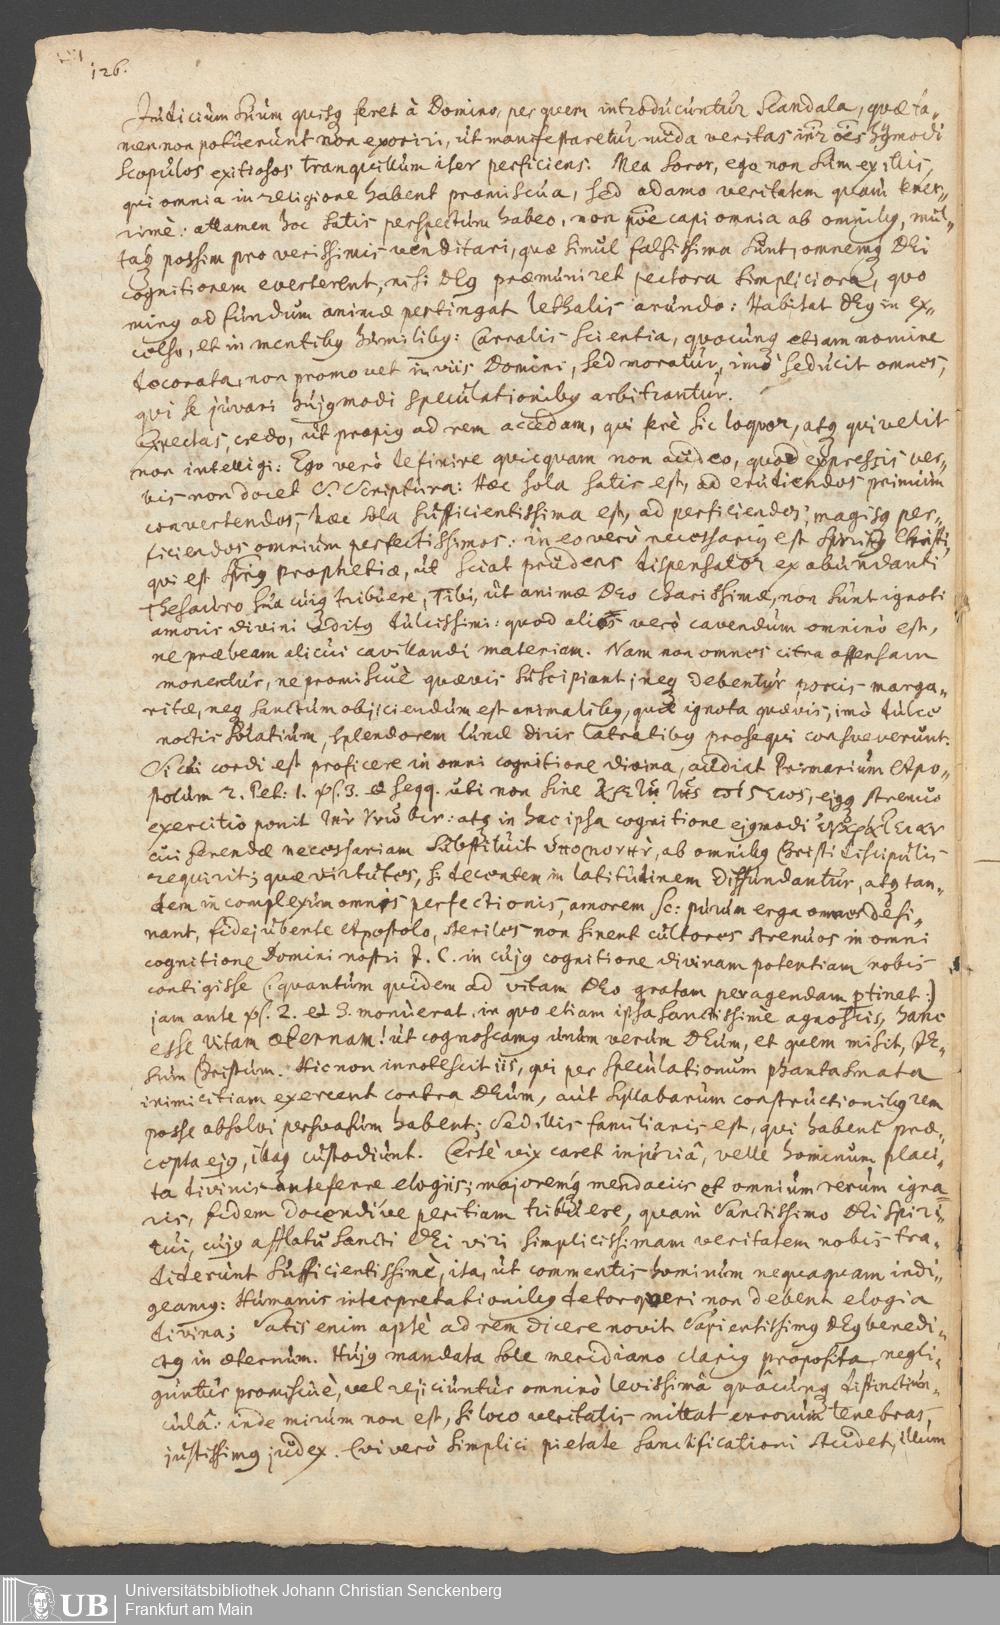 126.
Judicium suum quisq feret à Domino, per quem introducuntur Scandala, quæ ta-
men non potuerunt non exoriri, ut manifestaretur nuda veritas inter oēs hujmodi
scopulos exitiosos tranquillum iter perficiens. Mea Soror, ego non sum ex illis,
qui omnia in religione habent promiscua, sed adamo veritatem quam tener-
rimè: attamen hoc satis perspectum habeo, non posse capi omnia ab omnibq, mul-
taq possim pro verissimis venditari, quæ simul falsissima sunt, omnemq DEi
cognitionem everterent, nisi DEq præmuniret pectora simpliciora, quo
minq ad fundum animæ pertingat lethalis arundo: Habitat DEq in ex-
celso, et in mentibq humilibq: Carnalis scientia, quocunq etiam nomine
decorata, non promovet in viis Domini, sed moratur, imò seducit omnes,
qui se juvari hujqmodi speculationibq arbitrantur.
Expectas credo, ut propiq ad rem accedam, qui ferè sic loquor, atq qui velit
non intelligi: Ego verò definire quicquam non audeo, quod expressis ver-
bis non docet S. Scriptura: Hæc sola satis est, ad erudiendos primùm
convertendos, hæc sola sufficientissima est, ad perficiendos, magisq per-
ficiendos omnium perfectissimos: in eo verò necessariq est Spiritq Christi,
qui est Spritq prophetiæ, ut sciat prudens dispensator ex abundanti
thesauro sua cuiq tribuere, Tibi, ut animæ DEo charissimæ, non sunt ignoti
amoris divini aditq dulcissimi: quod aliis verò cavendum omninò est,
ne præbeam alicui cavillandi materiam. Nam non omnes citra offensam
monentur, ne promiscuè quævis suscipiant; neq debentur porcis marga-
ritæ, neq sanctum objiciendum est animalibq, quæ ignota quævis, imò dulce
noctis solatium, splendorem lunæ diris latratibq prosequi consueverunt.
Si cui cordi est proficere in omni cognitione divina, audiat Primarium Apo-
stolum 2. Pet: 1. ps. 3. et seqq. ubi non sine
exercitio ponit atq in hac ipsa cognitione ejqmodi
cui ferendæ necessariam substituit ab omnibq Christi discipulis
requirit; quæ virtutes, si decenter in latitudinem diffundantur, atq tan-
dem in complexum omnis perfectionis, amorem sc: purum erga omnes desi-
nant, fidejubente Apostolo, steriles non sinent cultores strenuos in omni
cognitione Domini nostri J. C. in cujq cognitione divinam potentiam nobis
contigisse (: quantum quidem ad vitam DEo gratam peragendam ptinet :)
jam ante ps. 2. et 3. monuerat, in quo etiam ipsa sanctissimè agnoscis, hanc
esse vitam æternam! ut cognoscamq unum verum DEum, et quem misit, JE-
sum Christum. Hic non innotescit iis, qui per speculationum phantasmata
inimicitiam exercent contra DEum, aut syllabarum constructionibq rem
posse absolvi persvasum habent; Sed illis familiaris est, qui habent præ-
cepta ejq, illaq custodiunt. Certè vix caret injuriâ, velle hominum placi-
ta divinis anteferre elogiis; majoremq mendaciis et omnium rerum igna-
ris, fidem docendive peritiam tribuere, quam Sanctissimo DEi Spiri-
tui, cujq afflatu sancti DEi viri simplicissimam veritatem nobis tra-
diderunt sufficientissimè, ita, ut commentis hominum nequaquam indi-
geamq: Humanis interpretationibq detorqueri non debent elogia
divina; Satis enim aptè ad rem dicere novit Sapientissimq DEq benedi-
ctq in æternum. Hujq mandata sole meridiano clariq proposita, negli-
guntur promiscuè, vel rejiciuntur omninò levissimâ quâcunq distinctiun-
culâ: inde mirum non est, si loco veritatis mittat errorum tenebras,
justissimq judex. Cui verò simplici pietate sanctificationi studet, illum
Universitätsbibliothek Johann Christian Senckenberg
Frankfurt am Main
UB